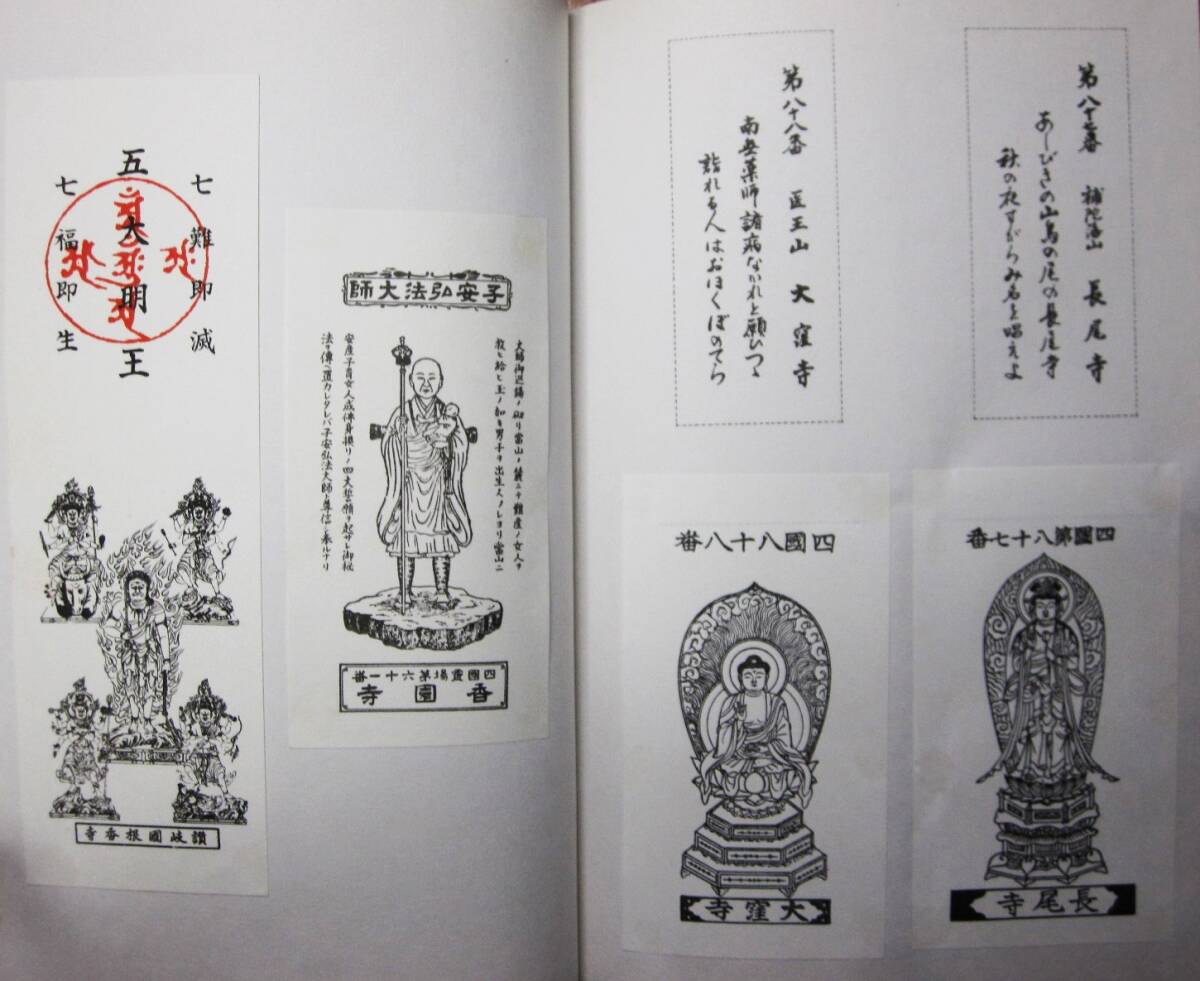 第八十七番 補陀洛山 長尾寺
あしびきの山鳥の尾の長尾寺
秋の夜すがらみ名を唱えよ
第八十八番 医王山 大窪寺
南無薬師諸病なかれと願ひつゝ
詣れる人はおほくぼのてら
四國第八十七番
長尾寺
四國八十八番
大窪寺
子安弘法大師
大師御巡錫ノ砌リ當山ノ麓ニテ難産ノ女人ヲ
救ヒ給ヒ玉ノ如キ男子ヲ出生 ソレヨリ當山ニ
安産子育女人成佛身摂リノ四大誓願ヲ起サレ御秘
法ヲ傳ヘ置カレタレバ子安弘法大師ト尊信シ奉ルナリ
四國霊場第六十一番
香園寺
七難即滅
五大明王
七福即生
讃岐國根香寺